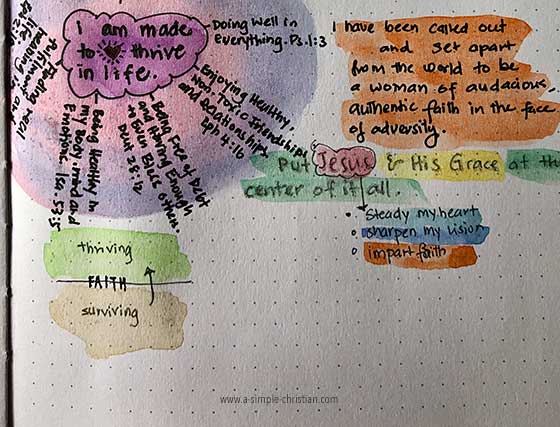 i am made
to thrive
in life.
Doing Well in
everything. Ps. 1:3
Enjoying Healthy,
Not Toxic Friendships
and Relationships
Eph 4:16
Being Free of Debt
and Having Enough
to Even Bless others.
Deut 28:12
Being Healthy in
my Body, mind and
Emotions. Isa. 53:5
Finding real
I have been called out
and set apart
from the world to be
a woman of audacious,
authentic faith in the face
of adversity.
Put Jesus & His Grace at the
center of it all.
Steady my heart
sharpen my vision
impart faith
thriving
FAITH
surviving
www.a-simple-christian.com